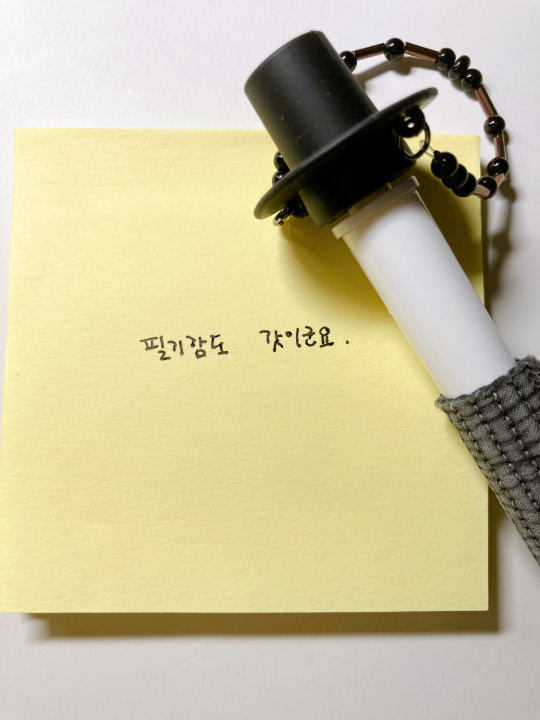 필기감도 갓이군요.